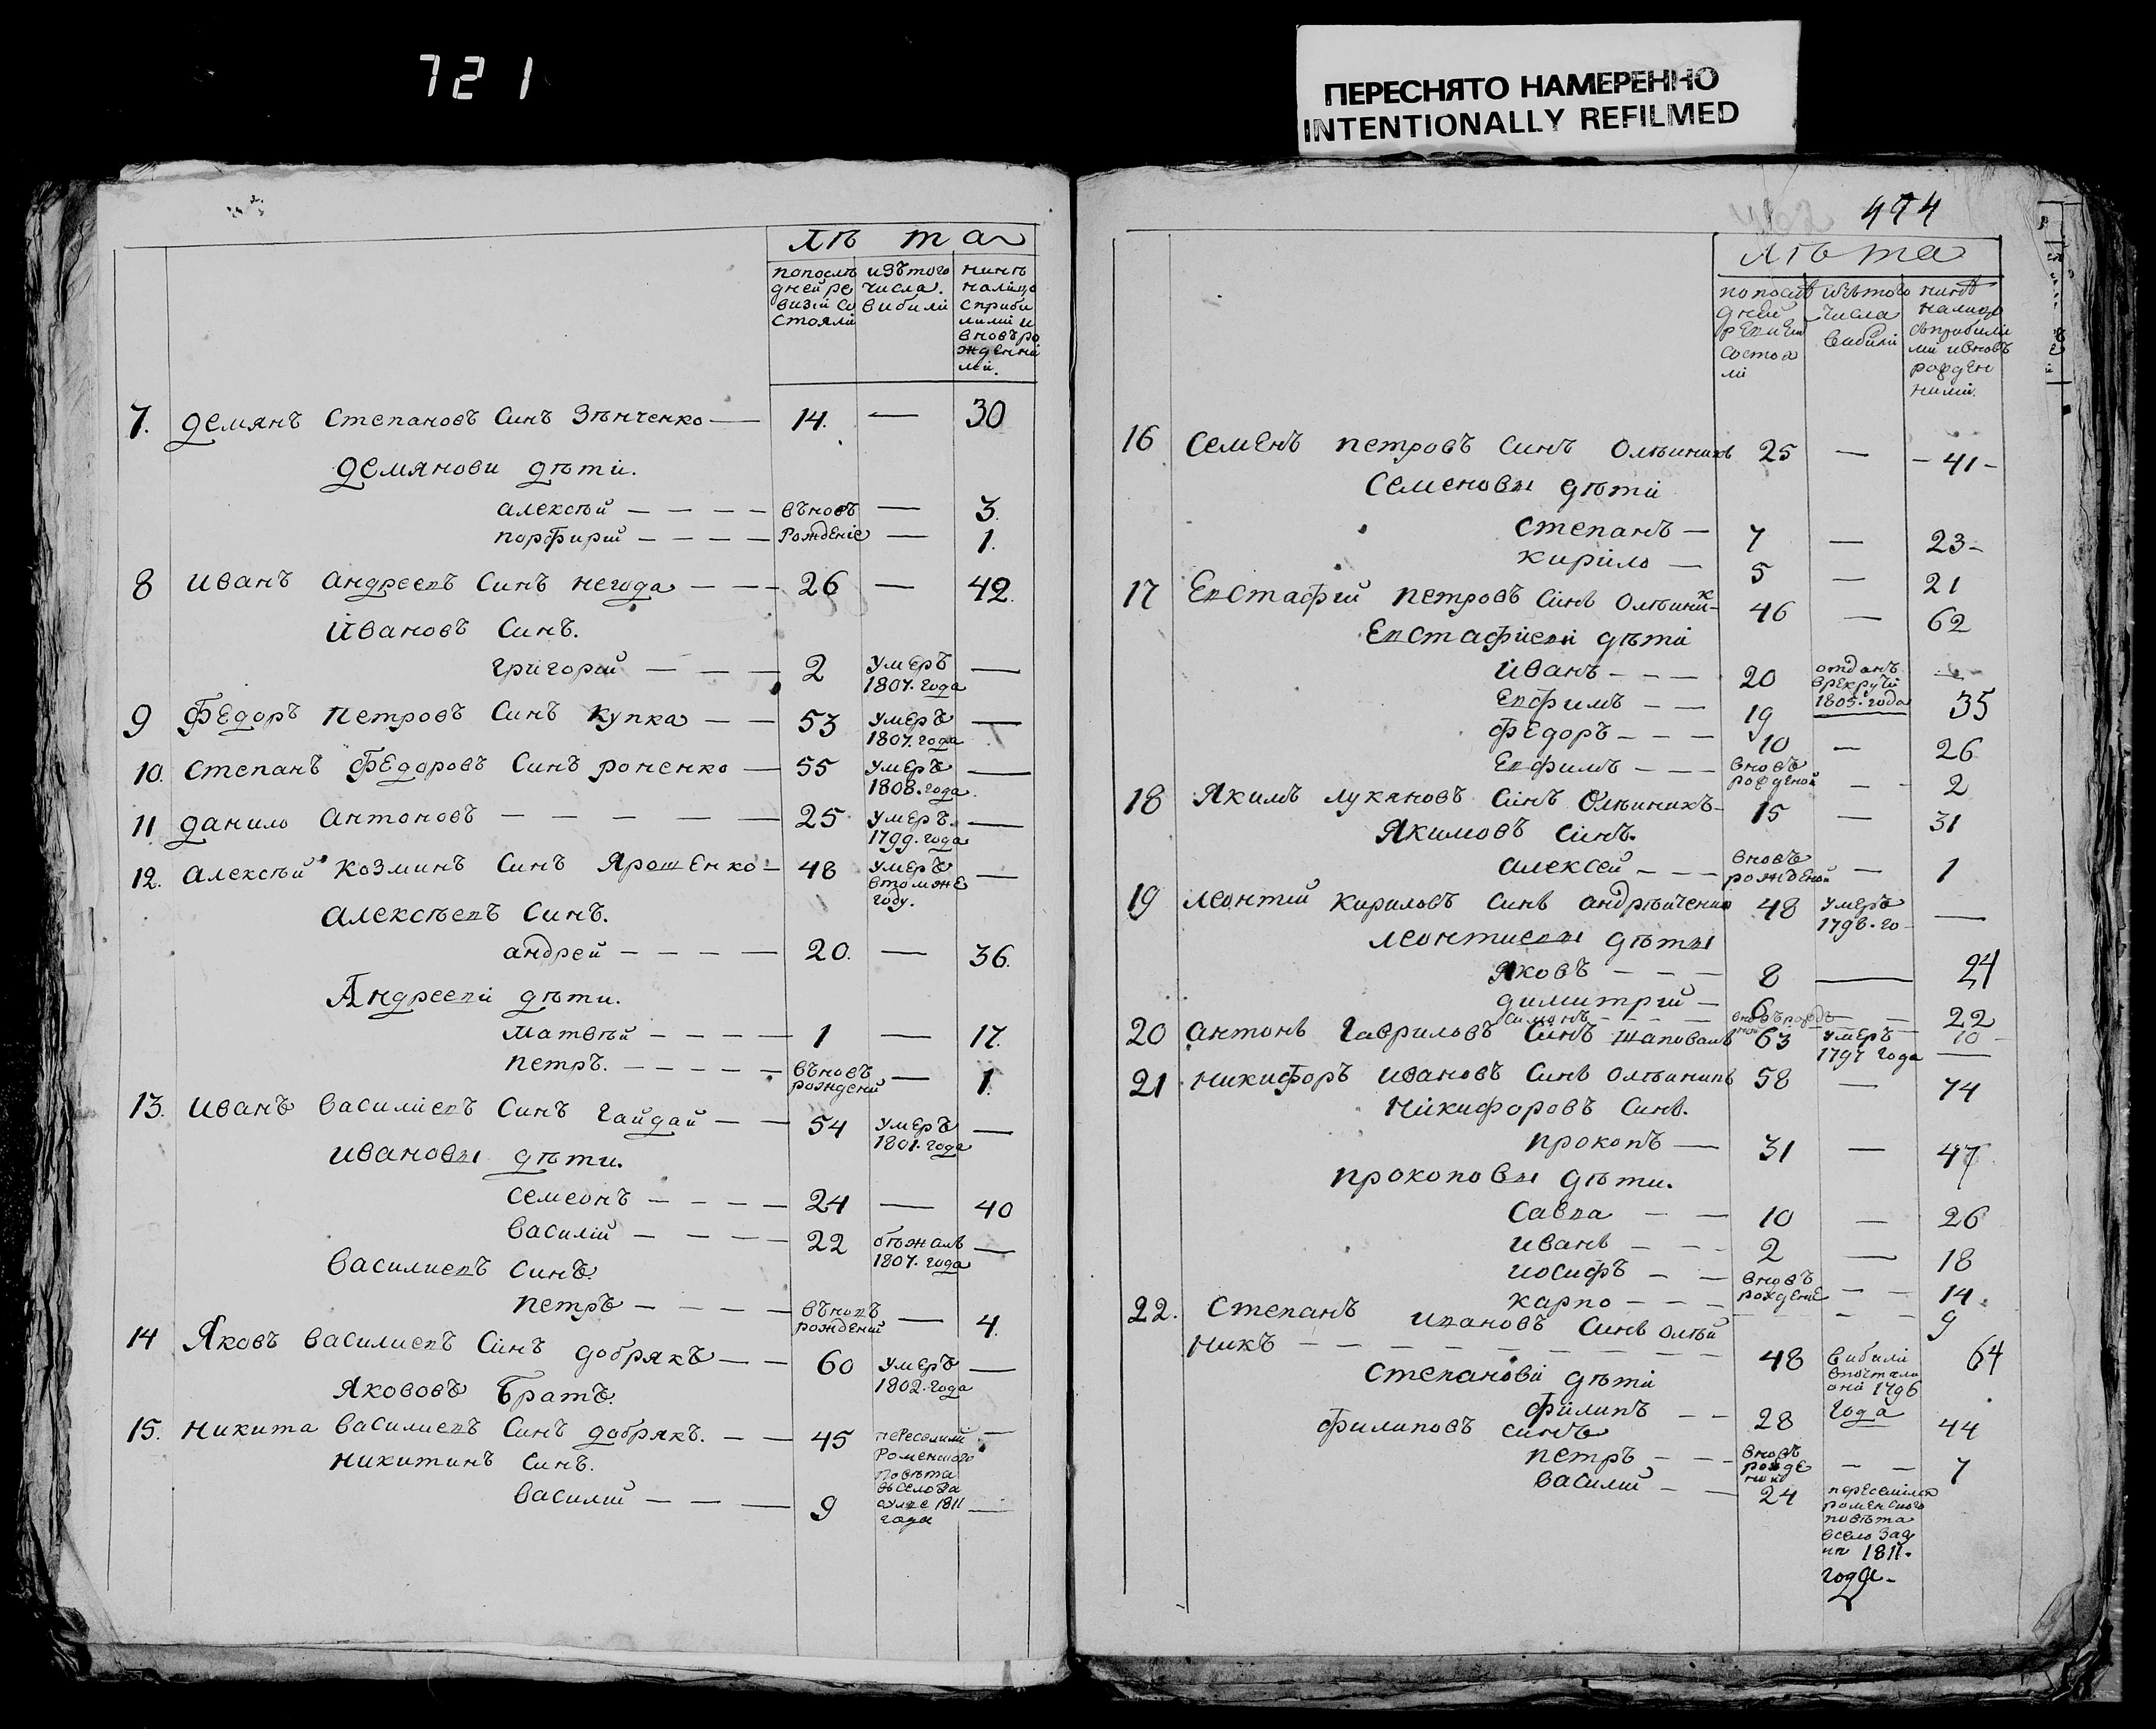 721
ПЕРЕСНЯТО НАМЕРЕННО
INTENTIONALLY REFILMED
лѣ та
попослѣ
дней ре
визіи со
стояли
изътого
числа.
вибили
нинѣ
налицо
сприби
лими и
вновъро
жденни
ми.
7. Демянъ Степановъ Синъ Зѣнченко — 14. — 30
Демянови дѣти.
алексѣй — — — — вновъ — 3.
порфирий — — — — рожденіе — 1.
8 Иванъ Андреевъ Синъ Негода — — — 26 — 42.
Йвановъ Синъ.
григорий — — — 2 умеръ 1807. года —
9 Федоръ Петровъ Синъ Купка — — 53 умеръ 1807. года —
10. Степанъ Федоровъ Синъ роненко — 55 умеръ 1808. года. —
11 Данило Антоновъ — — — — — 25 умеръ. 1799. года —
12. Алексѣй Козминъ Синъ Ярошенко — 48 умеръ втомже году. —
Алексѣевъ Синъ.
андрей — — — — 20. — 36.
Андрееви дѣти.
Матвѣй — — — — 1 — 17.
петръ. — — — — — въновъ рождений — 1.
13. Иванъ Василиевъ Синъ Гайдай — — 54 умеръ 1801. года —
Ивановы дѣти.
Семеонъ — — — — 24 — 40
Василій — — — — 22 бѣжалъ 1807. года —
Василиевъ Синъ.
Петръ — — — — въновъ рождений — 4.
14 Яковъ Василиевъ Синъ Добрякъ — — 60 умеръ 1802. года —
Якововъ Братъ.
15. Никита Василиевъ Синъ Добрякъ. — — 45 переселили —
Роменского
Повѣта
Никитинъ Синъ.
Василий — — — 9 1811 года —
474
лѣта
попослѣ
дней
ревизіи
состоя
ли
изътого
числа
вибили
нинѣ
налицо
сприбили
ми ивновъ
рожден
ними.
16 Семенъ Петровъ Синъ Олѣиникъ 25 — — 41 —
Семеновы дѣти
Степанъ — 7 — 23 —
Кирило — 5 — 21
17 Евстафий Петровъ Синъ Олѣиникъ 46 — 62
Евстафиеви дѣти
Иванъ — — — 20 отданъ врекрути 1805. года —
Евфимъ — — 19 35
Федоръ — — — 10 — 26
Евфимъ — — — вновъ рожденой — — 2
18 Якимъ Лукяновъ Синъ Олѣиникъ — 15 — 31
Якимовъ Синъ.
Алексей — — — вновъ рожденой — 1
19 Леонтий Кириловъ Синъ Андрѣйченко 48 умеръ 1798. го —
Леонтиевы дѣты
Яковъ — — — 8 — 24
Димитрий — 6 — — 22
Симонъ — — — 10 —
20 Антонъ Гавриловъ Синъ Шаповалъ 63 умеръ 1797 года —
21 Никифоръ Ивановъ Синъ Олѣиникъ 58 — 74
Никифоровъ Синъ.
Прокопъ — 31 — 47
Прокоповы дѣти.
Савва — — 10 — 26
Иванъ — — — 2 — 18
Иосифъ — — вновъ рождение — — 14.
Карпо — — — — — — — 9
22. Степанъ Ивановъ Синъ Олѣй
никъ — — — — — — — — — 48 вибили 1796 года 64
Степанови дѣти
Филипъ — — 28 44
Филиповъ синъ
Петръ — — — вновъ рожде ной — — 7
Василий — — 24 переселился
роменского
повѣта
всело
1811.
года —